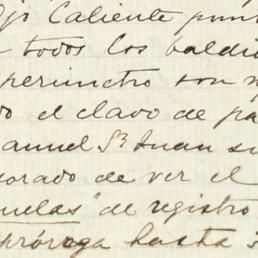 Ojo Caliente punt
todos los baldi
perimetro son
do el clavo de pa
anuel Sn Juan su
orado de ver el
uelas" de registro
prórroga hasta